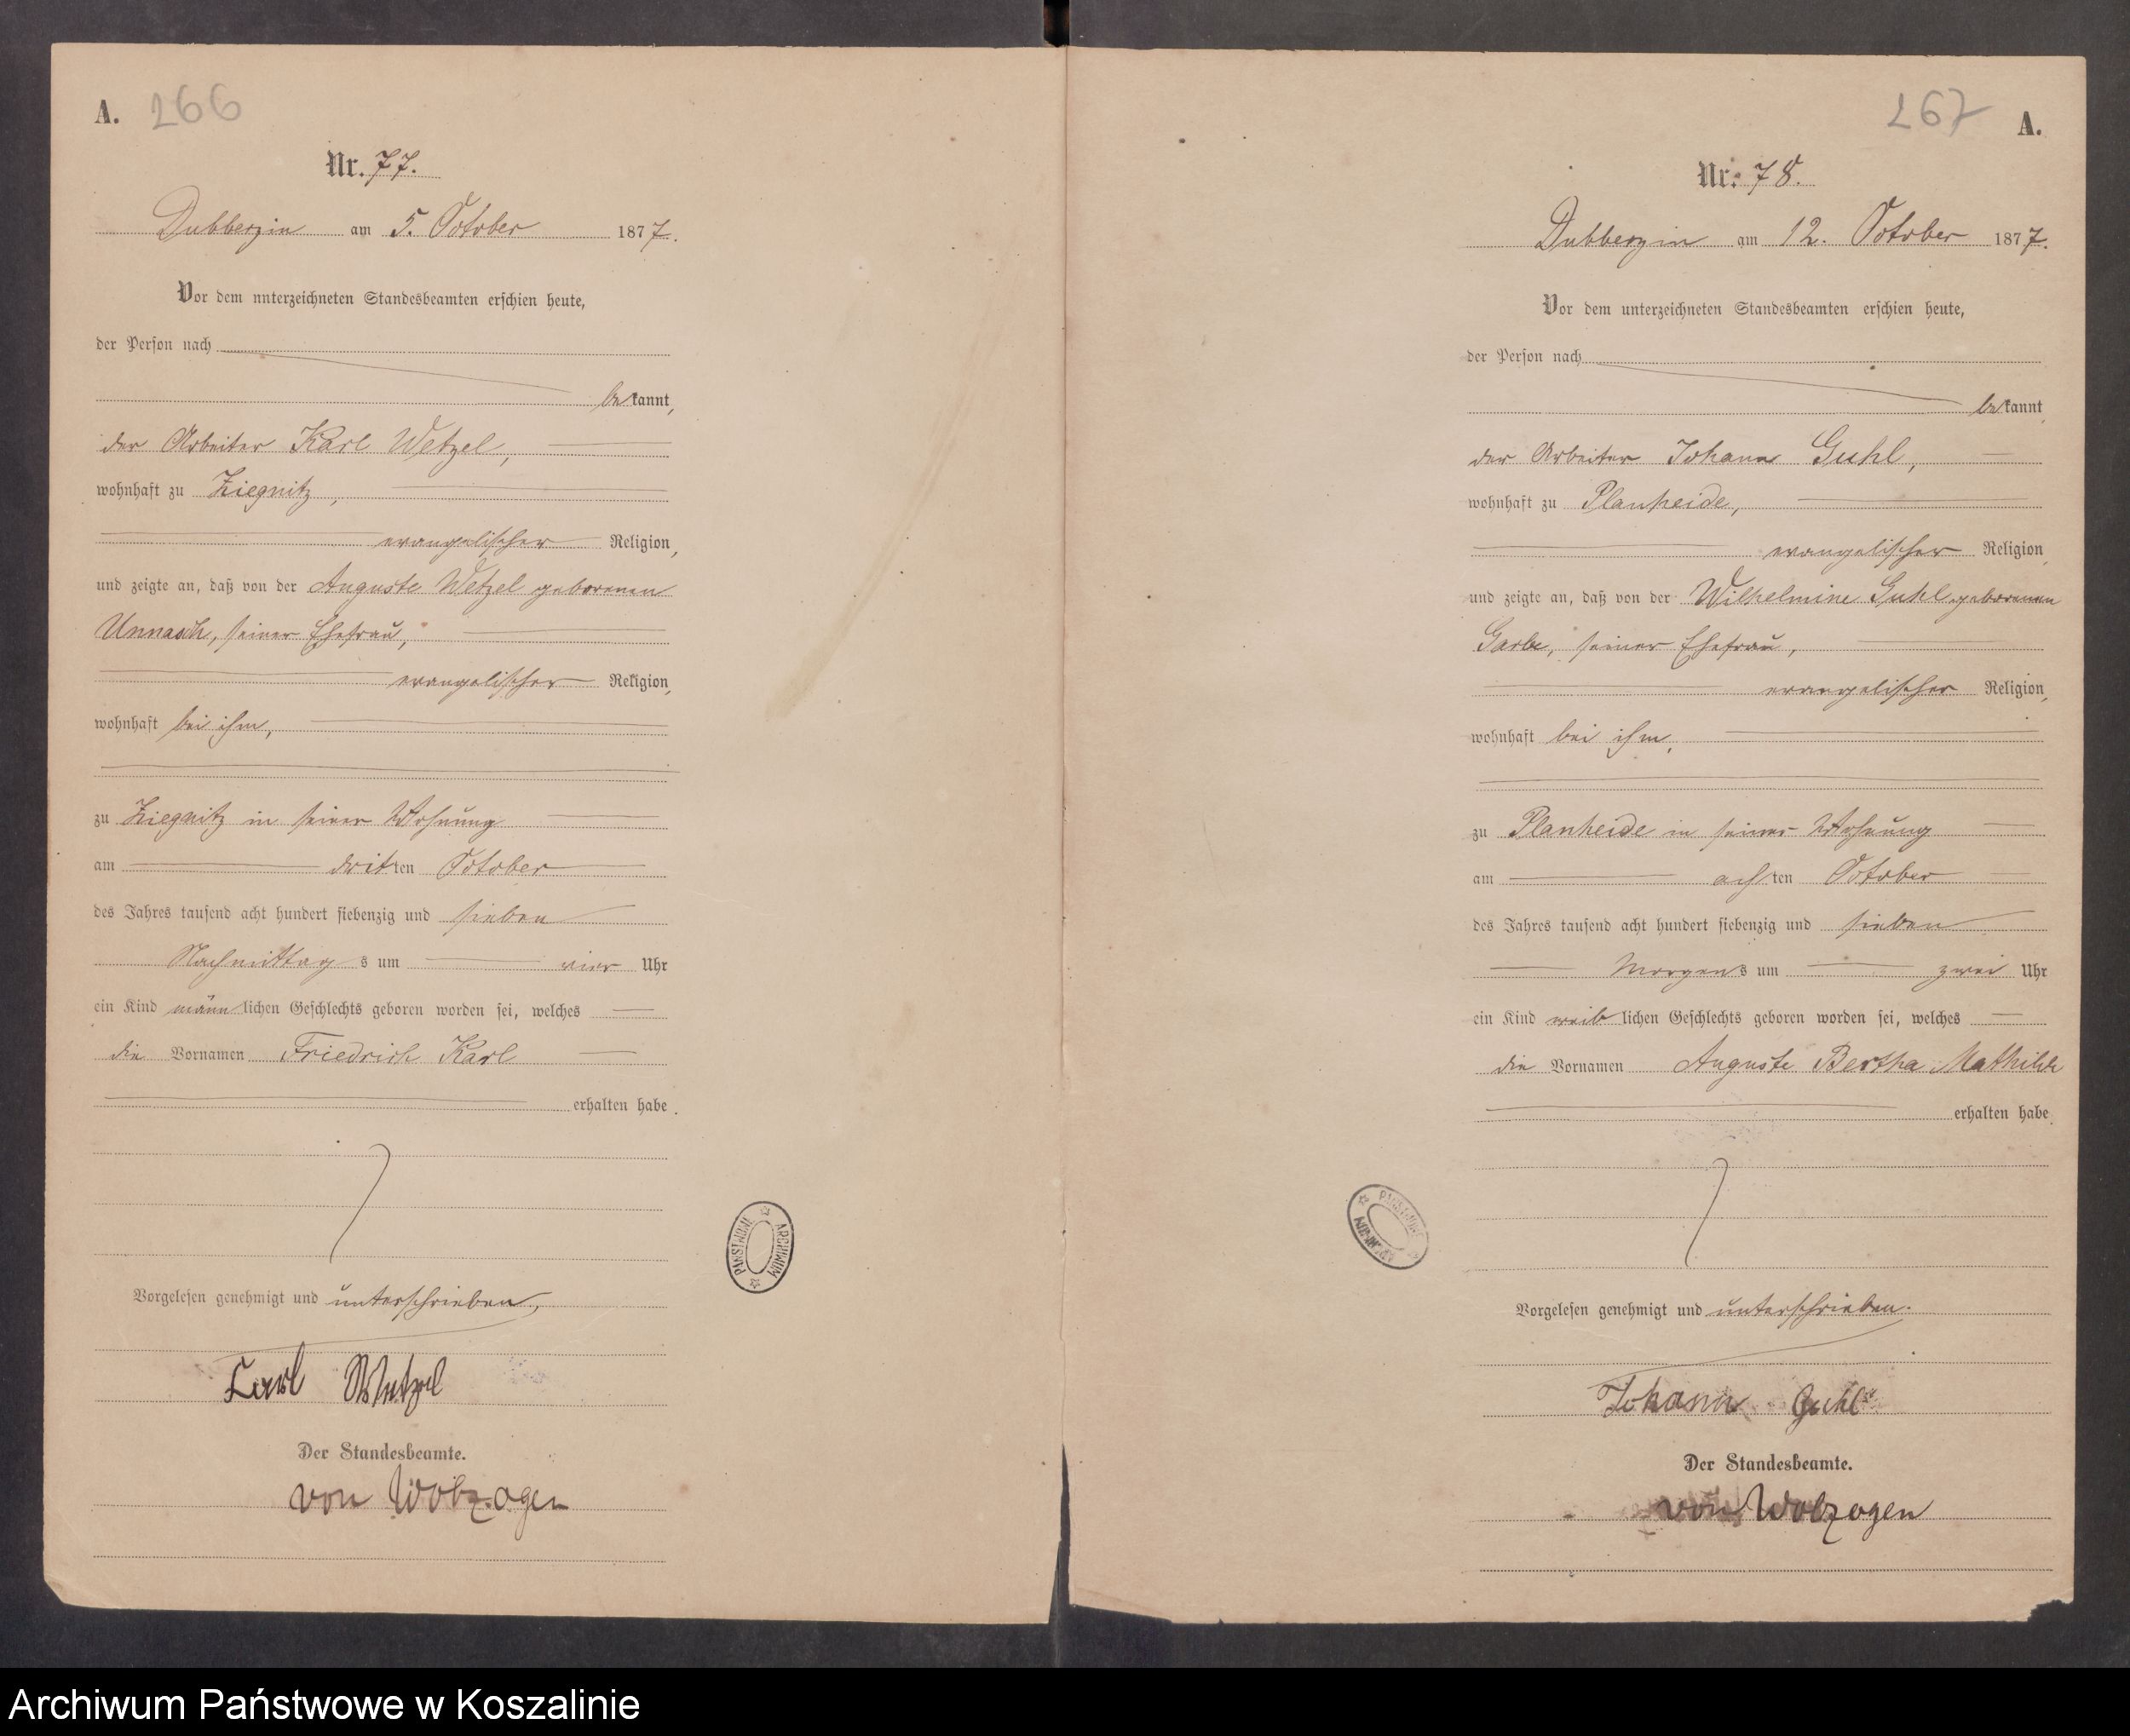 A. 266
Nr. 77.
Dubberzin am 5. October 1877.
Vor dem unterzeichneten Standesbeamten erschien heute,
der Person nach
bekannt,
der Arbeiter Karl Wetzel,
wohnhaft zu Ziegnitz,
evangelischer Religion,
und zeigte an, daß von der Auguste Wetzel geborenen
Unnasch, seiner Ehefrau,
evangelischer Religion,
wohnhaft bei ihm,
zu Ziegnitz in seiner Wohnung
am dritten October
des Jahres tausend acht hundert siebenzig und sieben
Nachmittags um vier Uhr
ein Kind männlichen Geschlechts geboren worden sei, welches
die Vornamen Friedrich Karl
erhalten habe.
Vorgelesen genehmigt und unterschrieben,
Carl Wetzel
Der Standesbeamte.
von Wolzogen
ARCHIWUM PAŃSTWOWE
267 A.
Nr. 78.
Dubberzin am 12. October 1877.
Vor dem unterzeichneten Standesbeamten erschien heute,
der Person nach
bekannt,
der Arbeiter Johann Guhl,
wohnhaft zu Planheide,
evangelischer Religion,
und zeigte an, daß von der Wilhelmine Guhl geborenen
Garbe, seiner Ehefrau,
evangelischer Religion,
wohnhaft bei ihm,
zu Planheide in seiner Wohnung
am achten October
des Jahres tausend acht hundert siebenzig und sieben
Morgens um zwei Uhr
ein Kind weiblichen Geschlechts geboren worden sei, welches
die Vornamen Auguste Bertha Mathilde
erhalten habe.
Vorgelesen genehmigt und unterschrieben.
Johann Guhl
Der Standesbeamte.
von Wolzogen
ARCHIWUM PAŃSTWOWE
Archiwum Państwowe w Koszalinie